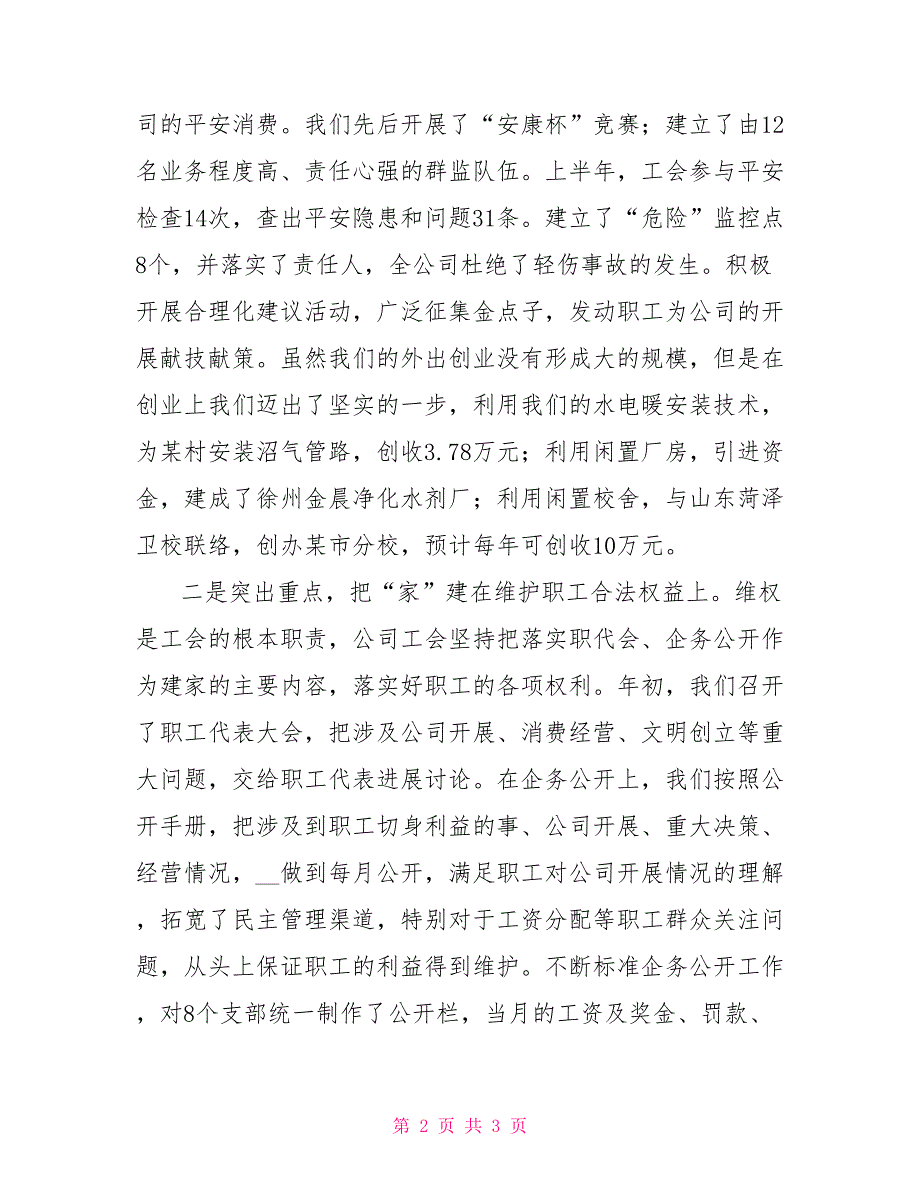 司的平安消费。我们先后开展了“安康杯”竞赛；建立了由12
名业务程度高、责任心强的群监队伍。上半年，工会参与平安
检查14次，查出平安隐患和问题31条。建立了“危险”监控点
8个，并落实了责任人，全公司杜绝了轻伤事故的发生。积极
开展合理化建议活动，广泛征集金点子，发动职工为公司的开
展献技献策。虽然我们的外出创业没有形成大的规模，但是在
创业上我们迈出了坚实的一步，利用我们的水电暖安装技术，
为某村安装沼气管路，创收3.78万元；利用闲置厂房，引进资
金，建成了徐州金晨净化水剂厂；利用闲置校舍，与山东菏泽
卫校联络，创办某市分校，预计每年可创收10万元。
二是突出重点，把“家”建在维护职工合法权益上。维权
是工会的根本职责，公司工会坚持把落实职代会、企务公开作
为建家的主要内容，落实好职工的各项权利。年初，我们召开
了职工代表大会，把涉及公司开展、消费经营、文明创立等重
大问题，交给职工代表进展讨论。在企务公开上，我们按照公
开手册，把涉及到职工切身利益的事、公司开展、重大决策、
经营情况，__做到每月公开，满足职工对公司开展情况的理解
，拓宽了民主管理渠道，特别对于工资分配等职工群众关注问
题，从头上保证职工的利益得到维护。不断标准企务公开工作
，对8个支部统一制作了公开栏，当月的工资及奖金、罚款、
第 2 页 共 3 页